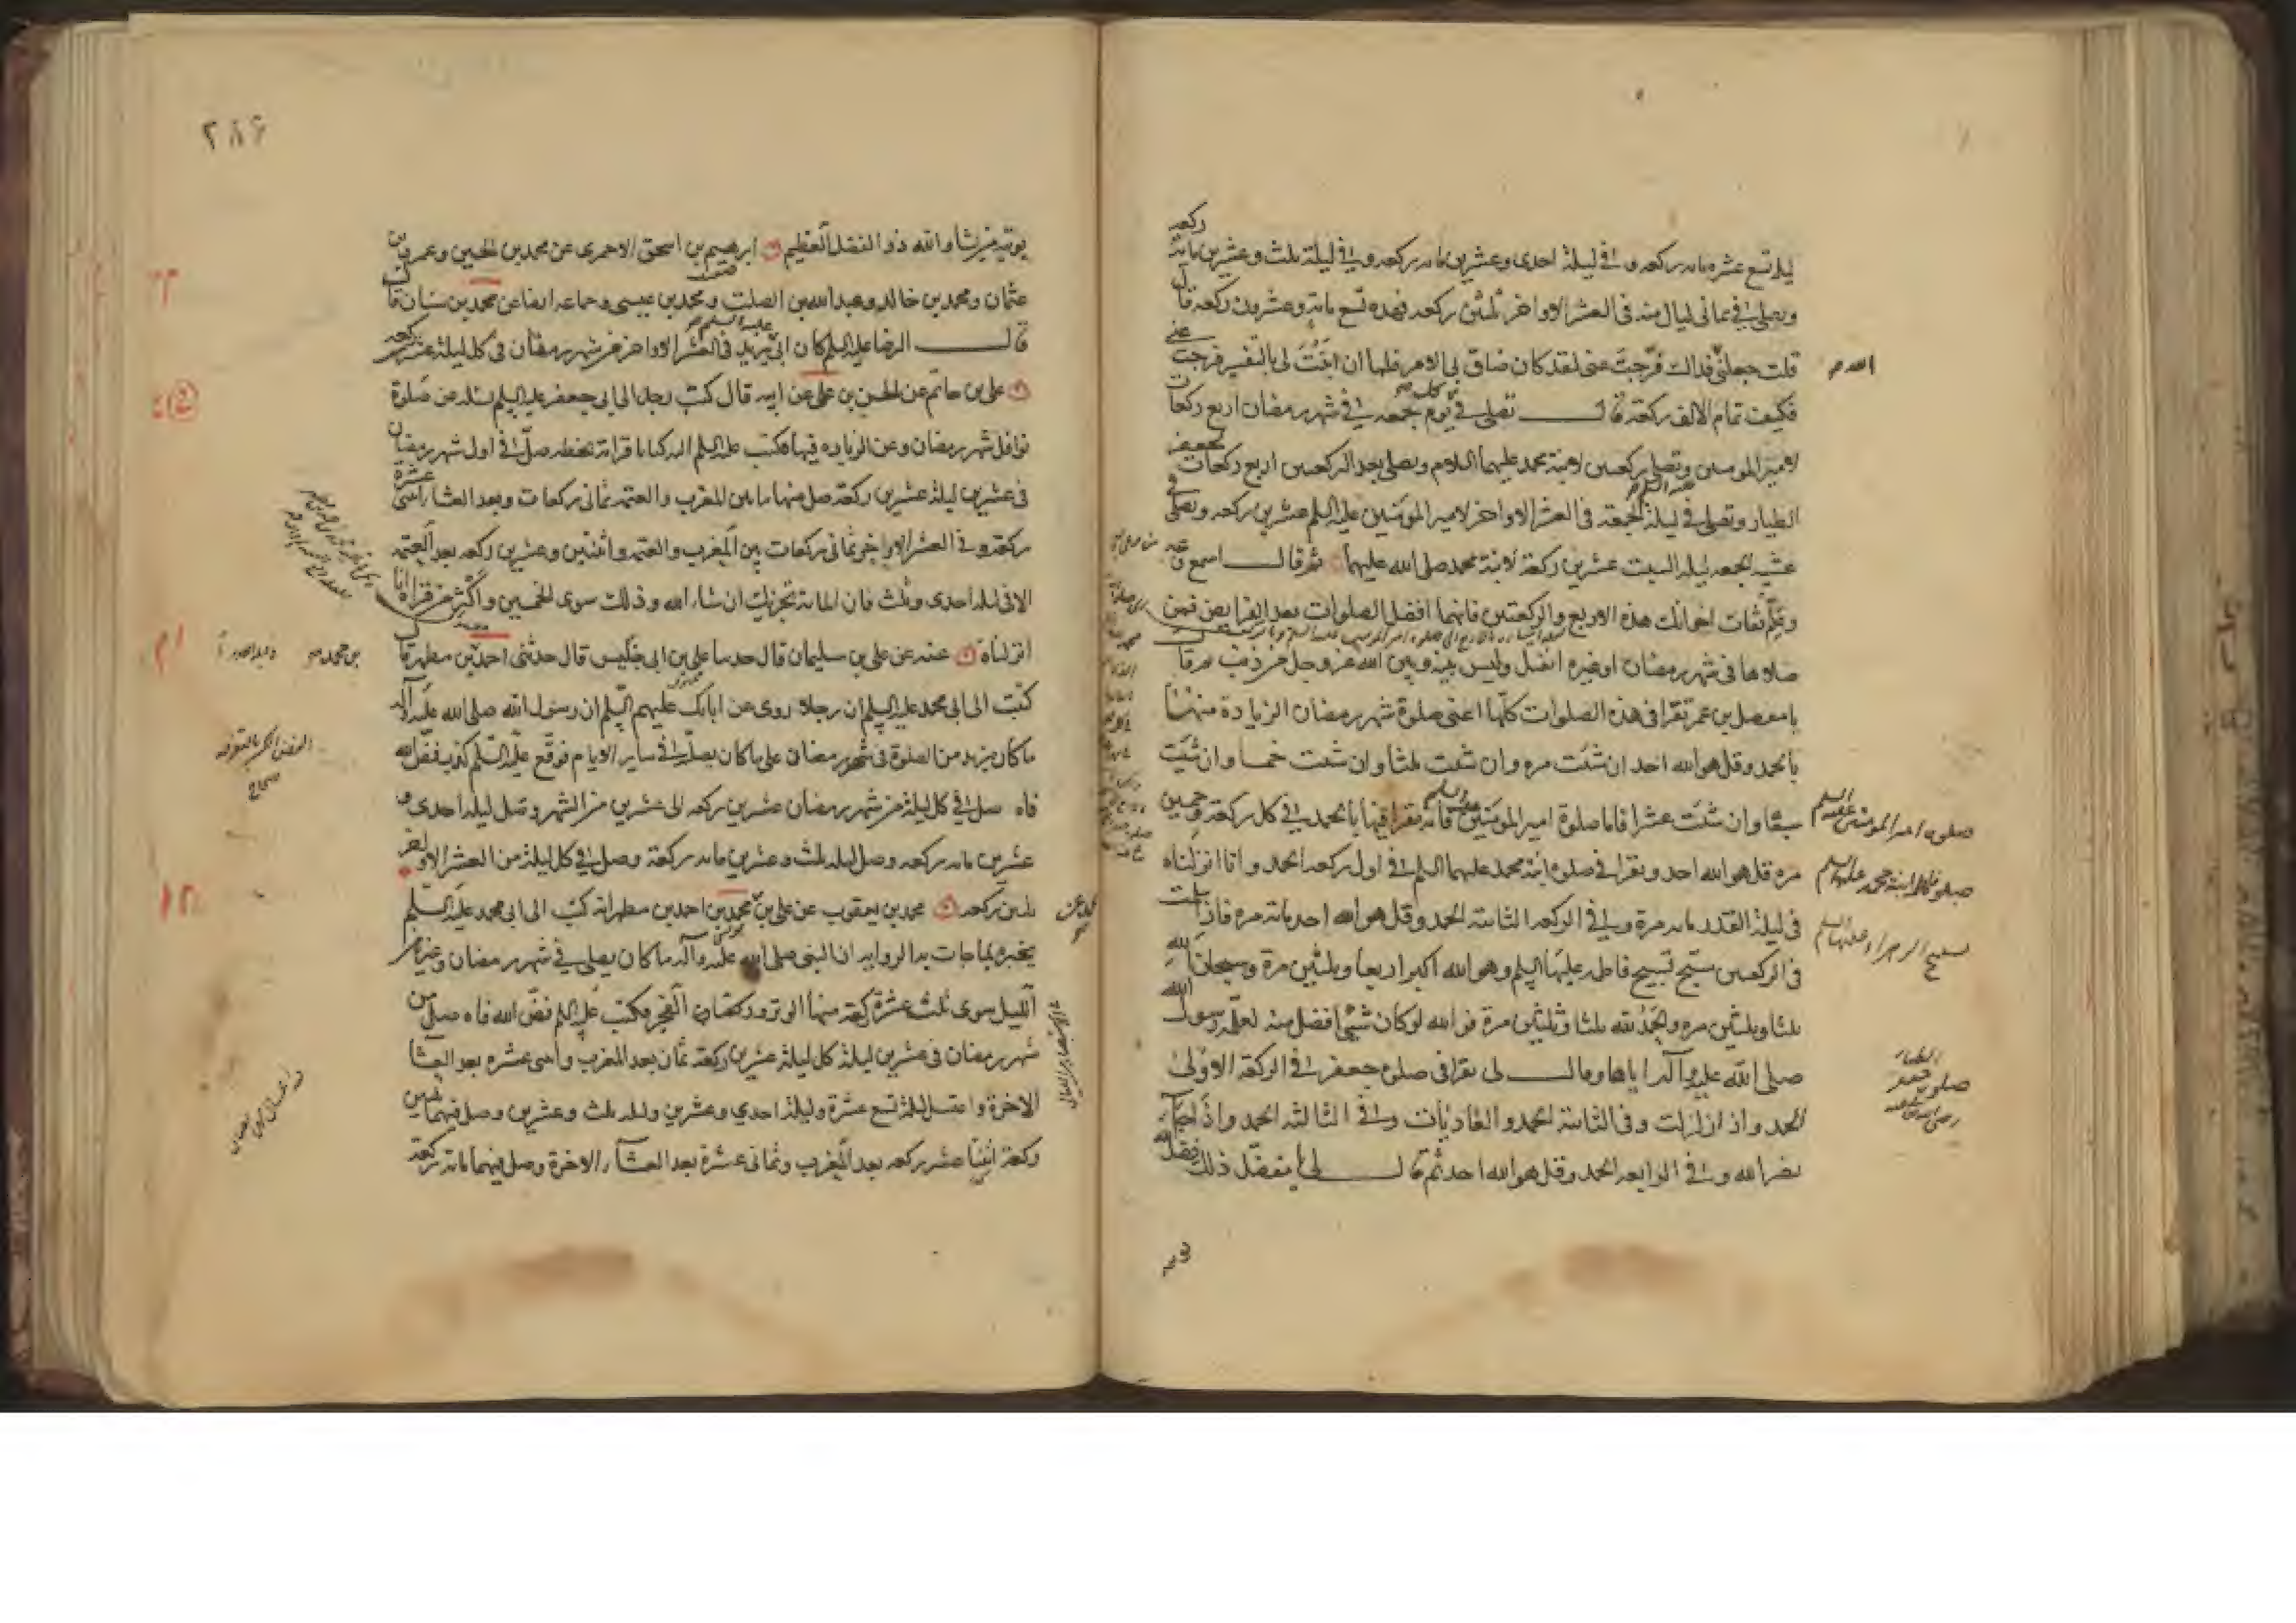 ركعه
ليلة تسع عشره مايه ركعه وفي ليلة احدى وعشرين مايه ركعه وفي ليلة ثلث وعشرين ماية
ويصلي في ثماني ليال منه في العشر الاواخر ثلثين ركعه فهذه تسع ماية وعشرون ركعه قال
قلت جعلني فداك فرجت عني لقد كان ضاق بي الامر فلما ان اتيت لي بالتفسير فرجت عني
الله
فكيف تمام الالف ركعة قال تصلي في يوم جمعه في شهر رمضان اربع ركعات
لامير المومنين وتصلي ركعتين لابنة محمد عليهما السلام وتصلي بعد الركعتين اربع ركعات لجعفر
الطيار وتصلي في ليلة الجمعة في العشر الاواخر لامير المومنين عليه السلم عشرين ركعه وتصلي في
عشية الجمعه ليلة السبت عشرين ركعة لابنة محمد صلى الله عليهما ثم قال اسمع وعه
وعلم ثقات اخوانك هذه الاربع والركعتين فانهما افضل الصلوات بعد الفرايض فمن
صلاها في شهر رمضان او غيره انفتل وليس بينه وبين الله عز وجل من ذنب ثم قال
يا مفضل بن عمر تقرا في هذه الصلوات كلها اعني صلوة شهر رمضان الزيادة منها
بالحمد وقل هو الله احد ان شئت مره وان شئت ثلثا وان شئت خمسا وان شئت
سبعا وان شئت عشرا فاما صلوة امير المومنين عليه السلم فانه تقرا فيها بالحمد في كل ركعة وخمسين
صلوه امير المومنين عليه السلم
مره قل هو الله احد وتقرا في صلوه ابنة محمد عليهما السلم في اول ركعه الحمد وانا انزلناه
صلوة فاطمة ابنة محمد عليهما السلم
في ليلة القدر مايه مرة وفي الركعه الثانية الحمد وقل هو الله احد مايه مره فاذا سلمت
تسبيح الزهراء عليها السلم
في الركعتين سبح تسبيح فاطمه عليها السلم وهو الله اكبر اربعا وثلثين مرة وسبحان الله
ثلثا وثلثين مره والحمد لله ثلثا وثلثين مرة فو الله لو كان شيئ افضل منه لعلمه رسول الله
صلى الله عليه وآله اياها وقال لي تقرا في صلوه جعفر في الركعة الاولى
صلوة جعفر الطيار رضي الله عنه
الحمد واذا زلزلت وفي الثانية الحمد والعاديات وفي الثالثه الحمد واذا جاء
نصر الله وفي الرابعه الحمد وقل هو الله احد ثم قال لي يا مفضل ذلك فضل الله
٢٨٦
يوتيه من يشاء والله ذو الفضل العظيم ابرهيم بن اسحق الاحمري عن محمد بن الحسين وعمرو بن
عثمان ومحمد بن خالد وعبد الله بن الصلت ومحمد بن عيسى وجماعه ايضا عن محمد بن سنان قال
قال الرضا عليه السلم كان ابي يزيد في العشر الاواخر من شهر رمضان في كل ليلة عشرين ركعه
علي بن حاتم عن الحسن بن علي عن ابيه قال كتب رجل الى ابي جعفر عليه السلم يسئله عن صلوة
نوافل شهر رمضان وعن الزياده فيها فكتب عليه السلم اليه كتابا قراته بخطه صل في اول شهر رمضان
في عشرين ليلة عشرين ركعة صل منها ما بين المغرب والعتمه ثماني ركعات وبعد العشاء اثنتى عشرة
ركعة وفي العشر الاواخر ثماني ركعات بين المغرب والعتمه واثنتين وعشرين ركعه بعد العتمه
الا في ليله احدى وثلث فان المائة تجزيك ان شاء الله وذلك سوى الخمسين واكثر من قراة انا
انزلناه عنه عن علي بن سليمان قال حدثنا علي بن ابي خليس قال حدثني احمد بن مطهر قال
بن محمد
كتبت الى ابي محمد عليه السلم ان رجلا روى عن ابائك عليهم السلم ان رسول الله صلى الله عليه وآله
ما كان يزيد من الصلوة في شهر رمضان على ما كان يصليه في ساير الايام فوقع عليه السلم كذب فض الله
الفض الكسر بالتفرقه
صحاح
فاه صل في كل ليلة من شهر رمضان عشرين ركعه الى عشرين من الشهر وصل ليله احدى و
عشرين مايه ركعه وصل ليله ثلث وعشرين مايه ركعة وصل في كل ليلة من العشر الاواخر
ثلثين ركعه محمد بن يعقوب عن علي بن محمد بن احمد بن مطهر انه كتب الى ابي محمد عليه السلم
يخبره بما جات به الروايه ان النبي صلى الله عليه وآله ما كان يصلي في شهر رمضان وغيره من
الليل سوى ثلث عشرة ركعة منها الوتر وركعتا الفجر فكتب عليه السلم فض الله فاه صلى من
شهر رمضان في عشرين ليلة كل ليلة عشرين ركعة ثمان بعد المغرب واثنتى عشره بعد العشا
الاخرة واغتسل ليلة تسع عشرة وليلة احدي وعشرين وليله ثلث وعشرين وصل فيهما ثلثين
ركعة اثنتا عشر ركعه بعد المغرب وثماني عشرة بعد العشاء الاخرة وصل فيهما ماية ركعة